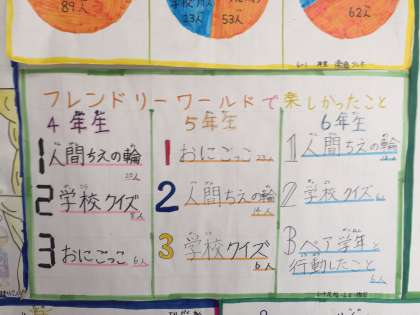 89人
13人
53人
62人
フレンドリーワールドで楽しかったこと
4年生
1 人間ちえの輪
2 学校クイズ
8人
3 おにごっこ 6人
5年生
1 おにごっこ
2 人間ちえの輪
3 学校クイズ
6人
6年生
1 人間ちえの輪
2 学校クイズ
3 ペア学年と
行動したこと
6人